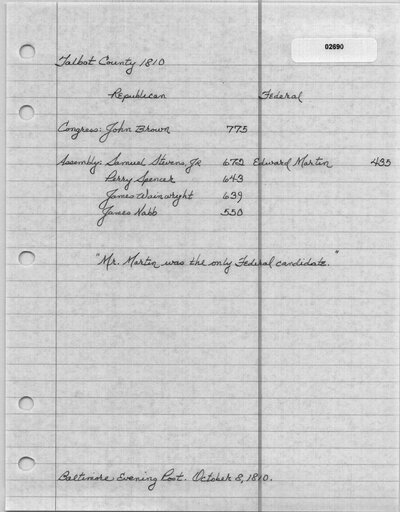 02690
Talbot County 1810
Republican Federal
Congress: John Brown 775
Assembly: Samuel Stevens, Jr 672 Edward Martin 435
Perry Spencer 643
James Wainwright 639
James Nabb 550
"Mr. Martin was the only Federal candidate."
Baltimore Evening Post. October 8, 1810.